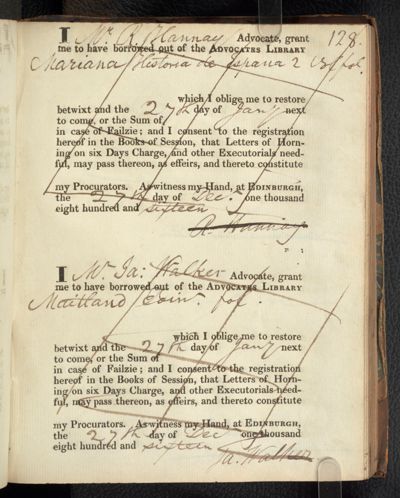 128.
I Mr. R. Hannay Advocate, grant
me to have borrowed out of the ADVOCATES LIBRARY
Mariana Historia de Espana 2 fol.
which I oblige me to restore
betwixt and the 27th day of Jany next
to come, or the Sum of
in case of Failzie; and I consent to the registration
hereof in the Books of Session, that Letters of Horn-
ing on six Days Charge, and other Executorials need-
ful, may pass thereon, as effeirs, and thereto constitute
my Procurators. As witness my Hand, at EDINBURGH,
the 27th day of Dec. one thousand
eight hundred and sixteen
R. Hannay
I Mr. Ja: Walker Advocate, grant
me to have borrowed out of the ADVOCATES LIBRARY
Maitland fol.
which I oblige me to restore
betwixt and the 27th day of Jany next
to come, or the Sum of
in case of Failzie; and I consent to the registration
hereof in the Books of Session, that Letters of Horn-
ing on six Days Charge, and other Executorials need-
ful, may pass thereon, as effeirs, and thereto constitute
my Procurators. As witness my Hand, at EDINBURGH,
the 27th day of Dec one thousand
eight hundred and sixteen
Ja. Walker